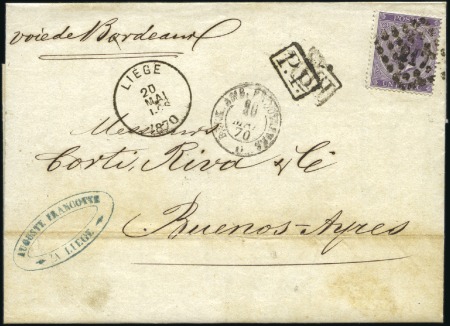 voie de Bordeaux
LIÉGE
20
MAI
1870
P.P.
70
Messieurs
Corti, Riva & Cie
Buenos-Ayres
AUGUSTE FRANCOTTE
A LIEGE